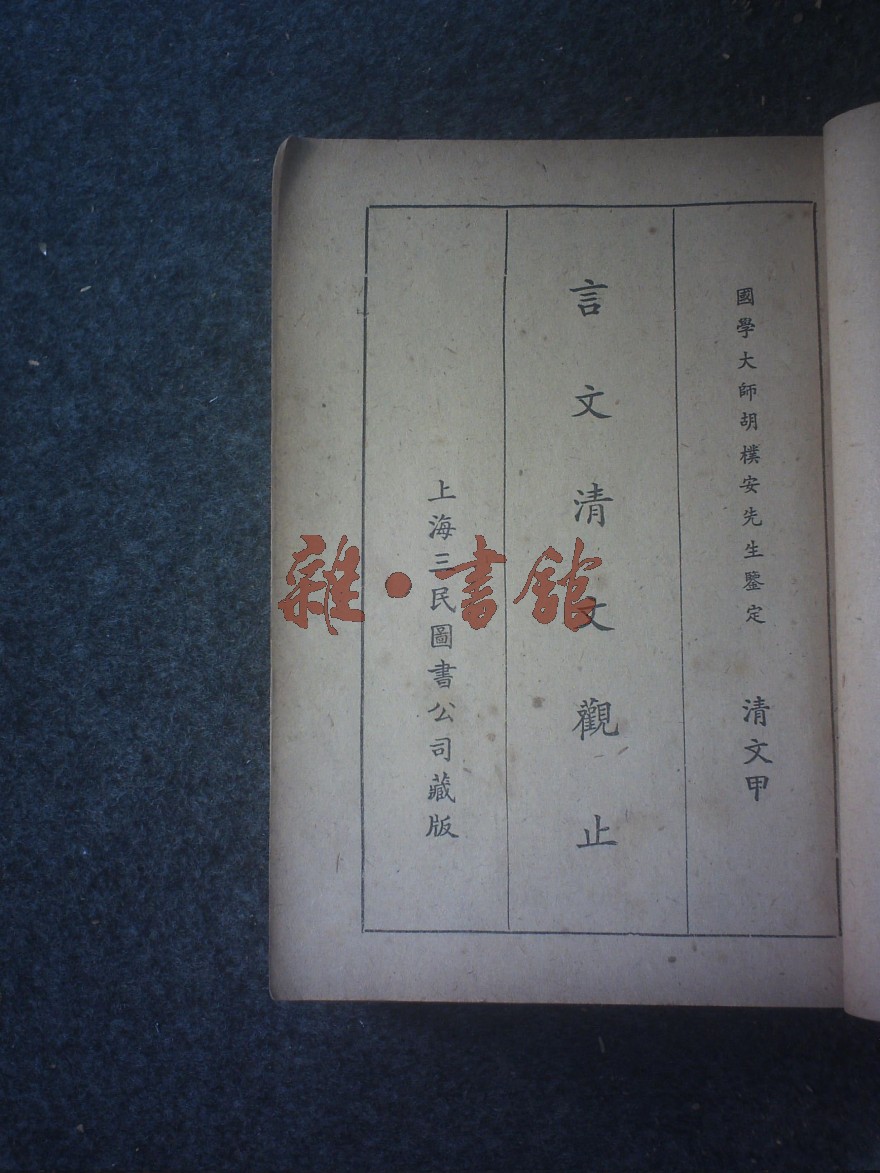 國學大師胡樸安先生鑒定 清文甲
言文清文觀止
上海三民圖書公司藏版
雜·書館